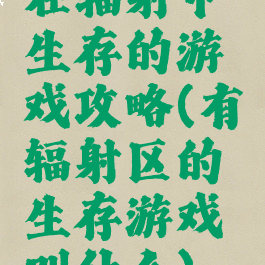 在辐射中
生存的游
戏攻略(有
辐射区的
生存游戏
叫什么)